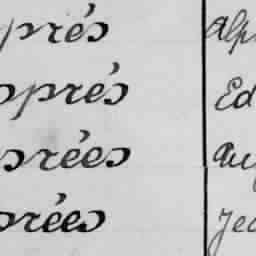 prés Alp
pprés Ed
srées Aug
orées Jea